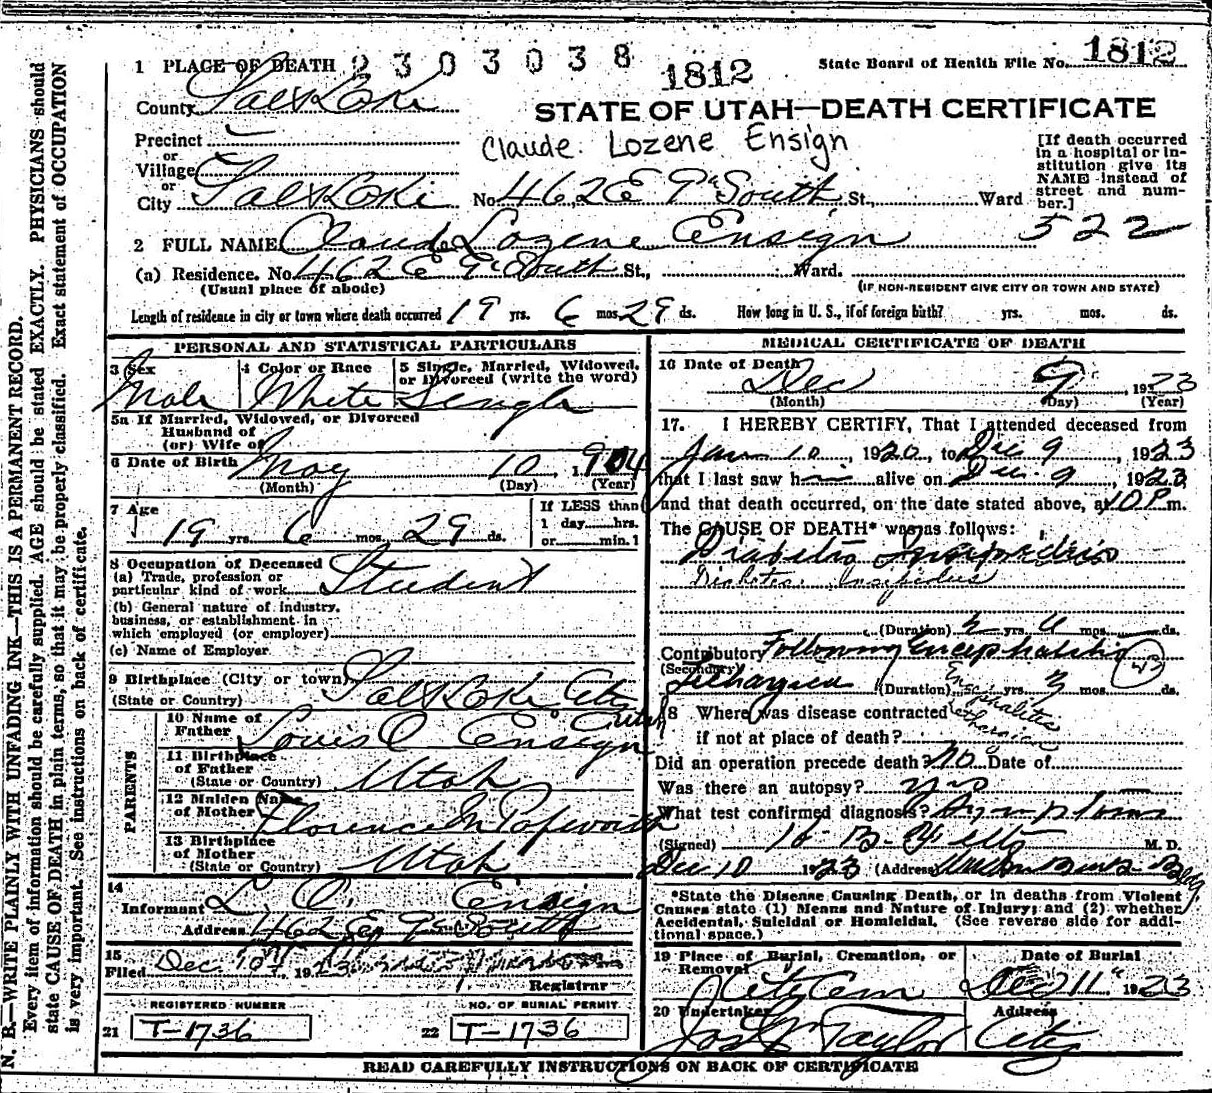 1 PLACE OF DEATH 2303038 1812 State Board of Health File No. 1812
County Salt Lake
STATE OF UTAH—DEATH CERTIFICATE
Precinct
or
Village
or
City Salt Lake No. 462 E 9th South St., Ward
Claude Lozene Ensign
[If death occurred
in a hospital or in-
stitution give its
NAME instead of
street and num-
ber.]
522
2 FULL NAME Claude Lozene Ensign
(a) Residence. No. 462 E 9th South St., Ward.
(Usual place of abode) (IF NON-RESIDENT GIVE CITY OR TOWN AND STATE)
Length of residence in city or town where death occurred 19 yrs. 6 mos. 29 ds. How long in U. S., if of foreign birth? yrs. mos. ds.
PERSONAL AND STATISTICAL PARTICULARS
3 Sex 4 Color or Race 5 Single, Married, Widowed,
or Divorced (write the word)
Male White Single
5a If Married, Widowed, or Divorced
Husband of
(or) Wife of
6 Date of Birth May 10, 1904
(Month) (Day) (Year)
7 Age
19 yrs. 6 mos. 29 ds.
If LESS than
1 day hrs.
or min.
8 Occupation of Deceased
(a) Trade, profession or
particular kind of work Student
(b) General nature of industry,
business, or establishment in
which employed (or employer)
(c) Name of Employer
9 Birthplace (City or town) Salt Lake City
(State or Country) Utah
PARENTS
10 Name of
Father Louis O Ensign
11 Birthplace
of Father
(State or Country) Utah
12 Maiden Name
of Mother Florence M Papworth
13 Birthplace
of Mother
(State or Country) Utah
14
Informant L. O. Ensign
Address 462 E 9th South
15
Filed Dec. 10, 1923
Registrar
REGISTERED NUMBER NO. OF BURIAL PERMIT
21 T-1736 22 T-1736
MEDICAL CERTIFICATE OF DEATH
16 Date of Death
Dec 9, 1923
(Month) (Day) (Year)
17. I HEREBY CERTIFY, That I attended deceased from
Jan 10, 1920, to Dec 9, 1923
that I last saw him alive on Dec 9, 1923
and that death occurred, on the date stated above, at 10 P m.
The CAUSE OF DEATH* was as follows:
Diabetes Insipidus
Diabetes Insipidus
(Duration) yrs. mos. ds.
Contributory Following Encephalitis
(Secondary)
Lethargica (Duration) yrs. 3 mos. ds.
Encephalitis
Lethargica
18 Where was disease contracted
if not at place of death?
Did an operation precede death? No Date of
Was there an autopsy? yes
What test confirmed diagnosis? Symptoms
(Signed) M. D.
Dec 10 1923 (Address) Bldg.
*State the Disease Causing Death, or in deaths from Violent
Causes state (1) Means and Nature of Injury; and (2) whether
Accidental, Suicidal or Homicidal. (See reverse side for addi-
tional space.)
19 Place of Burial, Cremation, or
Removal Date of Burial
City Cem Dec 11" 1923
20 Undertaker Address
Jos Wm Taylor City
READ CAREFULLY INSTRUCTIONS ON BACK OF CERTIFICATE
N. B.—WRITE PLAINLY WITH UNFADING INK—THIS IS A PERMANENT RECORD.
Every item of information should be carefully supplied. AGE should be stated EXACTLY. PHYSICIANS should
state CAUSE OF DEATH in plain terms, so that it may be properly classified. Exact statement of OCCUPATION
is very important. See instructions on back of certificate.